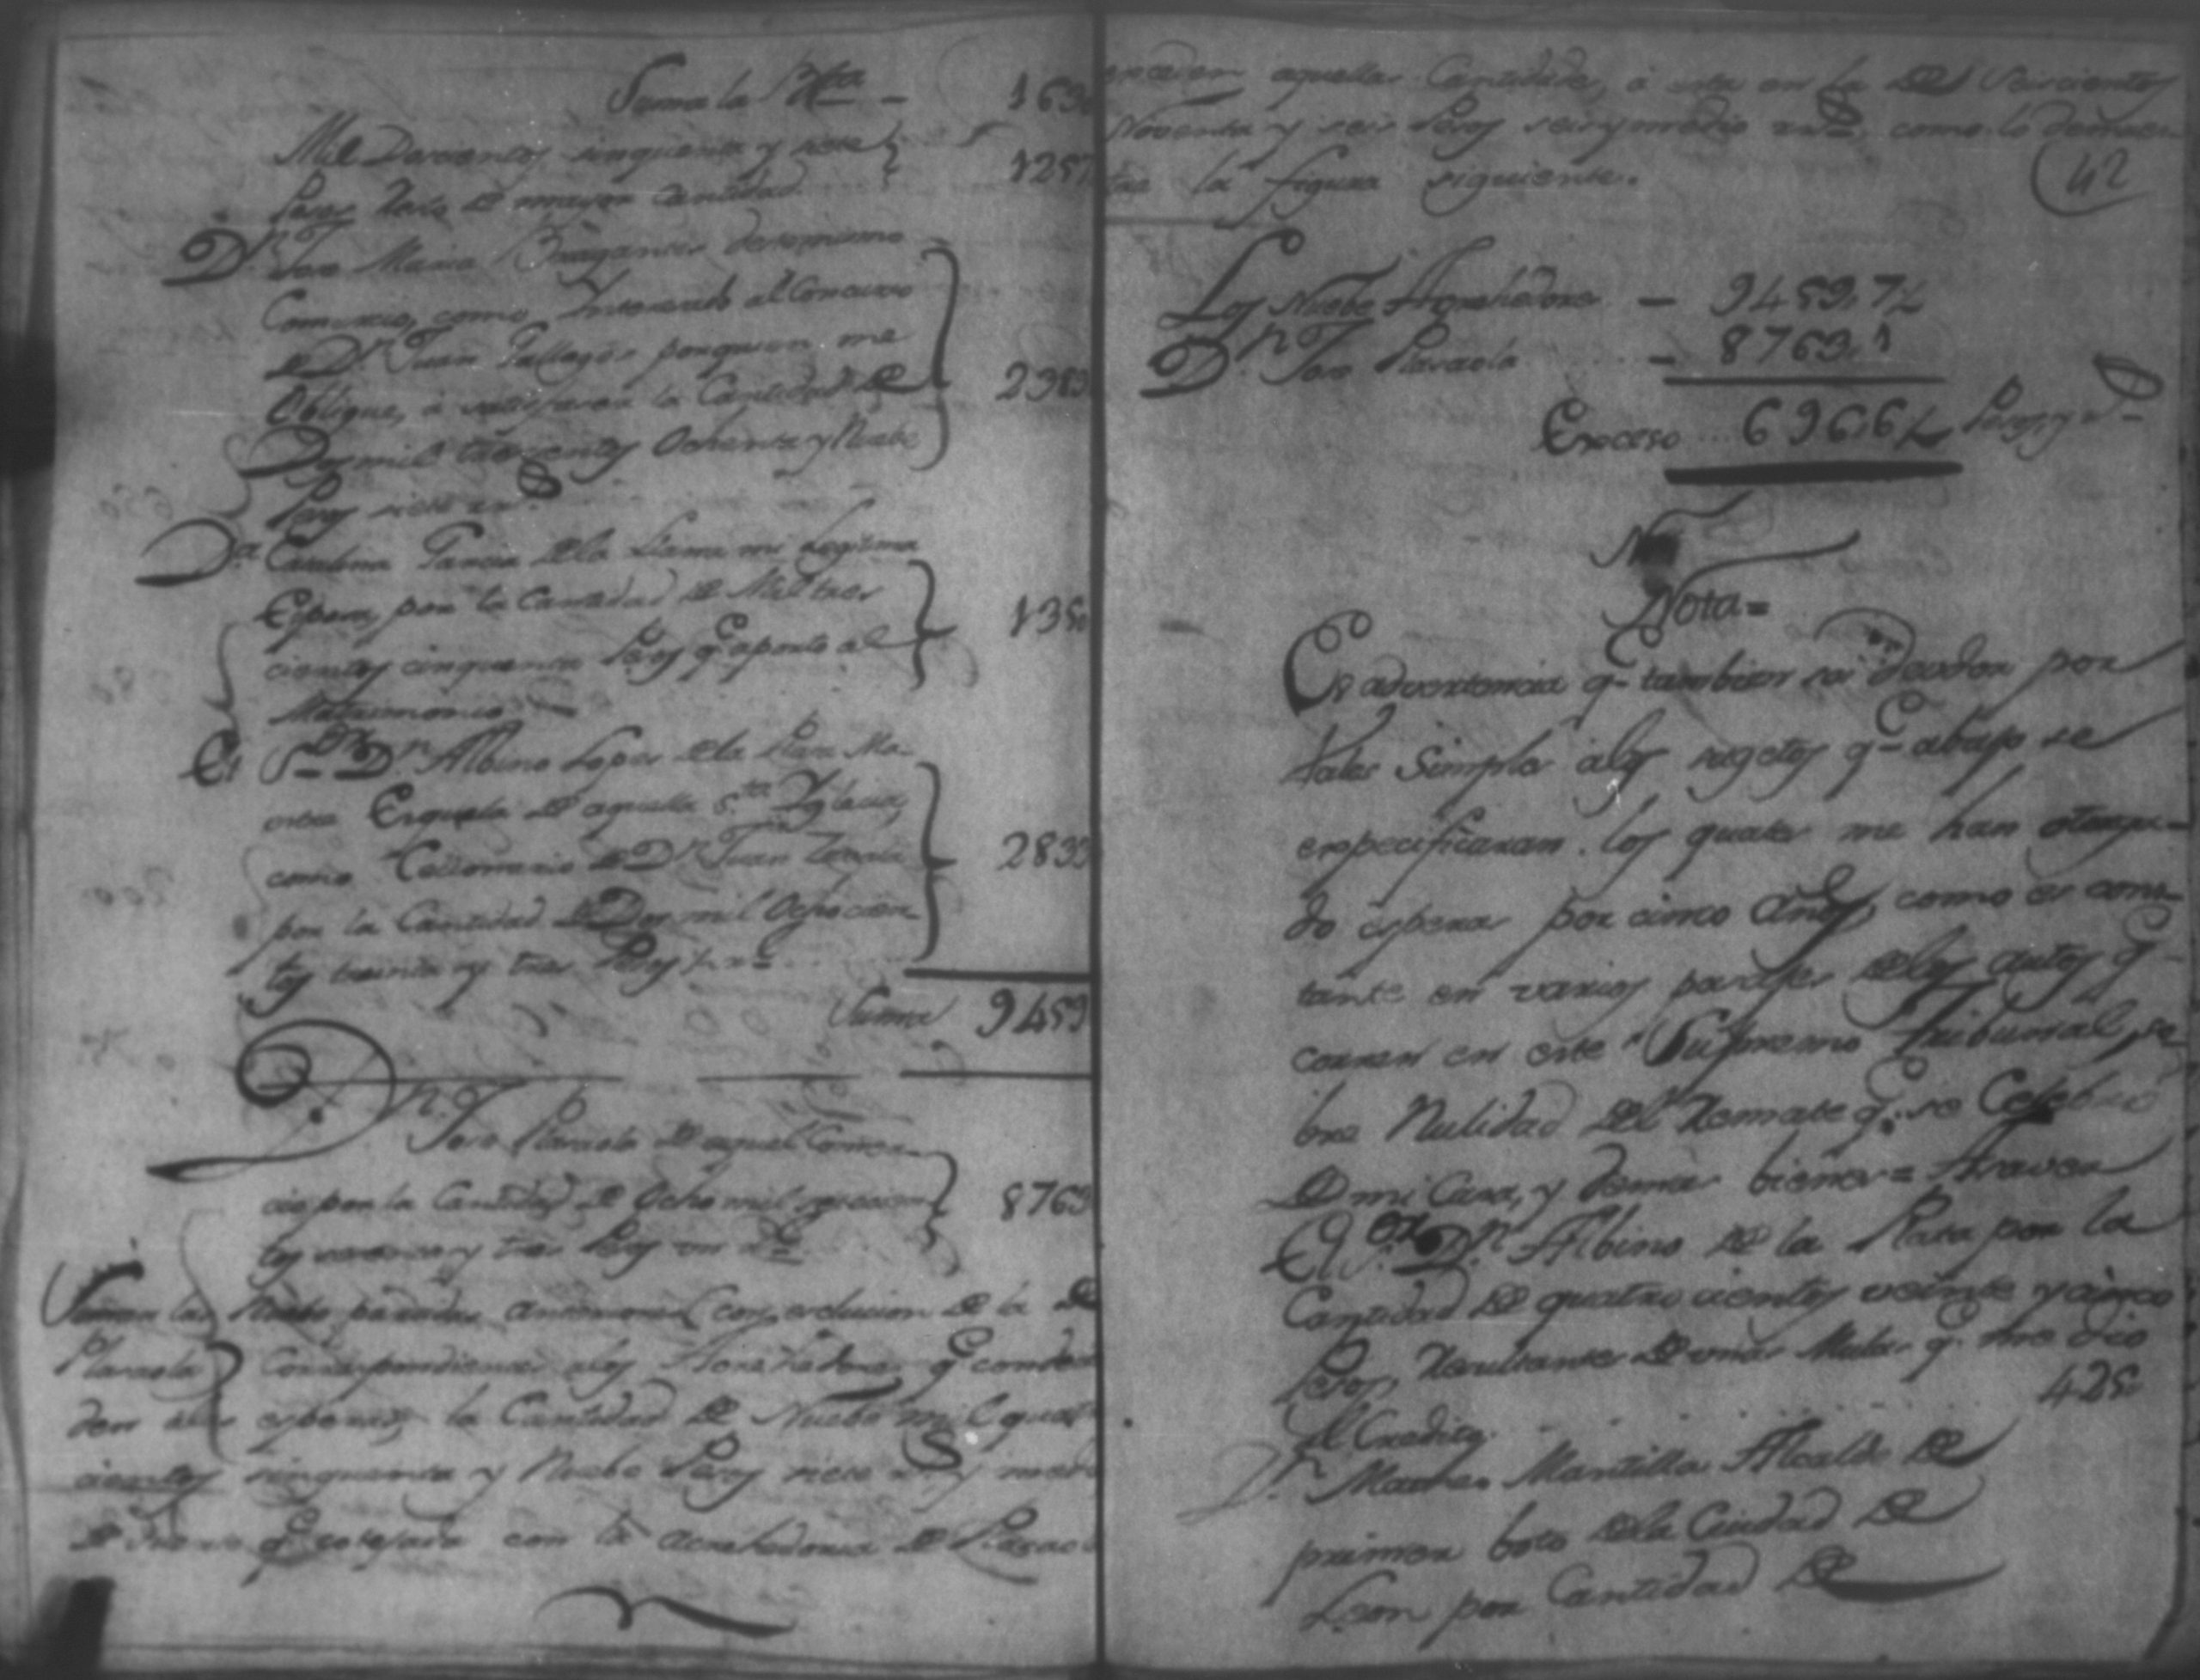 Suma la Bta — 1630
Mil Dorcientos cinquenta y siete 1257
Pesos Resto de mayor Cantidad
Dn. Jose Maria Braganza del mismo
Comercio, como Interesado al Concurso
de Dn. Juan Gallegos por quien me
Obligue, á satisfacer la Cantidad de 2389
Dos mil trescientos Ochenta y Nuebe
Pesos siete rs.
Da. Catalina Garcia de la Llama mi Legitima
Esposa, por la Cantidad de Mil tres 1350
cientos cinquenta Pesos qe. aportó al
Matrimonio
El Sor. Dn. Albino Lopes de la Plata Ma-
estre Esquela de aquella Sta. Yglecia,
como Cecionario de Dn. Juan 2833
por la Cantidad de Dos mil Ochocien-
tos treinta y tres Pesos
Suma 9459
Dn. Jose Plazaola de aquel Comer-
cio por la Cantidad de Ocho mil setecien- 8763
tos sesenta y tres Pesos un rl.
Suman las Nuebe partidas anteriores (con exclucion de la de
Plazaola) Correspondientes alos Acrehedores qe. conce
den las esperas, la Cantidad de Nuebe mil quatro
cientos cinquenta y Nuebe Pesos siete rs. y medio
de suerte qe. cotejada con la acrehedoria de Plazaola
exceden aquellas Cantidades, á esta en la de Seiscientos
Noventa y seis Pesos seis y medio rs. como lo demues-
tra la figura siguiente.
42
Los Nuebe Acrehedores — 9459.7½
Dn. Jose Plazaola — 8763.1
Exceso... 696.6½ Pesos y rs.
Nota=
Es advertencia qe. tambien soi Deudor por
Vales Simples alos sugetos qe. abajo se
expecificaran. los quales me han otorga-
do espera por cinco Años, como es cons-
tante en varios parajes delos autos qe.
corren en este Supremo Tribunal, so-
bre Nulidad del Remate qe. se Celebró
De mi Casa, y demas bienes= Asaver
El Sor. Dn. Albino de la Plata por la
Cantidad de quatro cientos veinte y cinco
Pesos, Resultantes de unas Mulas qe. me dio
al Credito. 425
Dn. Mantilla Alcalde de
primer boto dela Ciudad de
Leon por Cantidad de